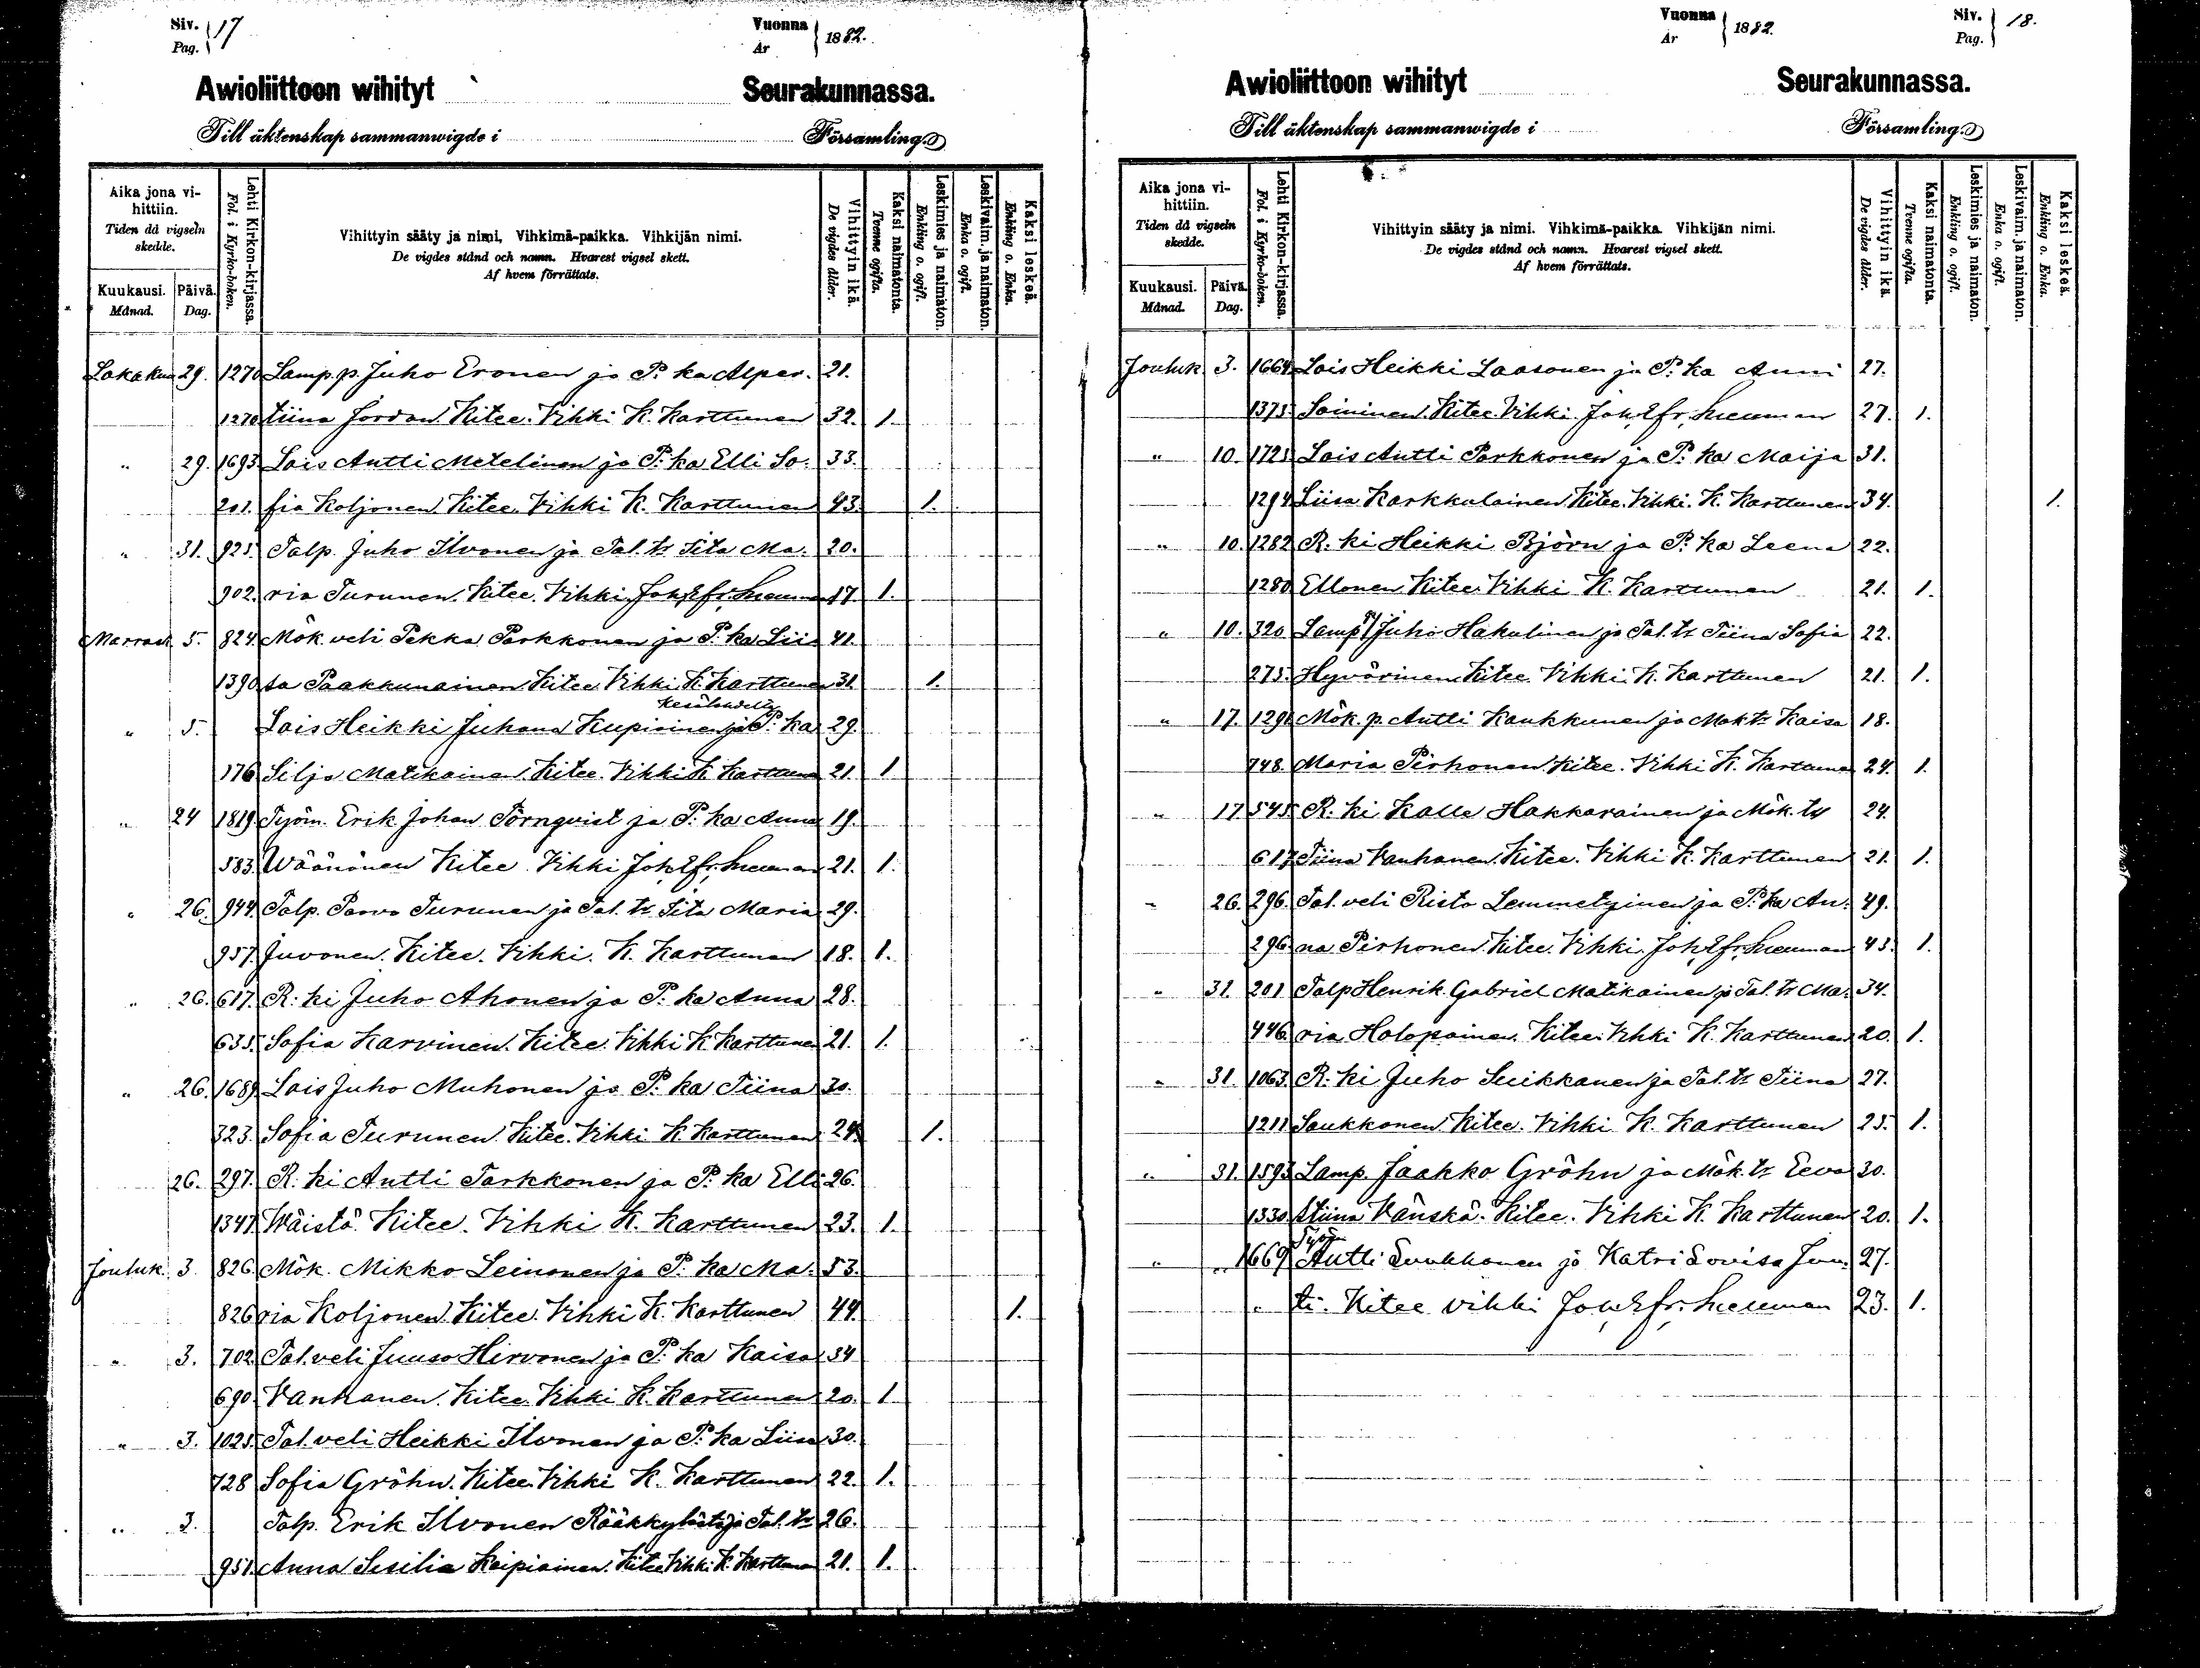 Siv. Pag. 17
Vuonna År 1882.
Awioliittoon wihityt Seurakunnassa.
Till äktenskap sammanwigde i Församling.
Aika jona vihittiin. Tiden då vigseln skedde.
Kuukausi. Månad.
Päivä. Dag.
Lehti Kirkon-kirjassa. Fol. i Kyrko-boken.
Vihittyin sääty ja nimi, Vihkimä-paikka. Vihkijän nimi.
De vigdes stånd och namn. Hvarest vigsel skett.
Af hvem förrättats.
Vihittyin ikä. De vigdes ålder.
Kaksi naimatonta. Tvenne ogifta.
Leskimies ja naimaton. Enkling o. ogift.
Leskivaim. ja naimaton. Enka o. ogift.
Kaksi leskeä. Enkling o. Enka.
Lokakuu 29. 1270 Lamp. p. Juho Eronen ja P:ka Alper- 21.
1270 tiina Jordan Kitee. Vihki K. Karttunen 32. 1.
" 29. 1693 Lois Antti Metelinen ja P:ka Elli So- 33.
201. fia Koljonen Kitee Vihki K. Karttunen 43. 1.
" 31. 925. Talp. Juho Ilvonen ja Tal. tr Iita Ma- 20.
902. ria Turunen. Kitee. Vihki Joh. Efr. Sneuman 17. 1.
Marrask 5. 824. Mök. veli Pekka Parkkonen ja P:ka Lii- 41.
1390 sa Paakkunainen Kitee Vihki K. Karttunen 31. 1.
Kesälahdelta
" 5. Lois Heikki Juhana Kupiainen ja P:ka 29.
176 Silja Matikainen. Kitee Vihki K. Karttunen 21. 1
" 24 1819. Työm. Erik Johan Törnqvist ja P:ka Anna 19.
583. Wäänänen Kitee. Vihki Joh. Efr. Sneuman 21. 1.
" 26. 944. Talp. Paavo Turunen ja Tal. tr Iita Maria 29.
957. Juvonen. Kitee. Vihki. K. Karttunen 18. 1.
" 26. 617. R:ki Juho Ahonen ja P:ka Anna 28.
635. Sofia Karvinen. Kitee. Vihki K. Karttunen 21. 1.
" 26. 1689. Lois Juho Muhonen ja P:ka Tiina 30.
323. Sofia Turunen. Kitee. Vihki K. Karttunen 24. 1.
26. 297. R:ki Antti Tarkkonen ja P:ka Elli 26.
1347. Wäistö. Kitee. Vihki K. Karttunen 23. 1.
Jouluk. 3 826. Mök. Mikko Leinonen ja P:ka Ma- 53.
826 ria Koljonen. Kitee. Vihki K. Karttunen 44. 1.
" 3. 702. Tal. veli Juuso Hirvonen ja P:ka Kaisa 34
690. Vanhanen. Kitee. Vihki K. Karttunen 20. 1
" 3. 1025. Tal. veli Heikki Ilvonen ja P:ka Liisa 30.
728 Sofia Gröhn. Kitee. Vihki K. Karttunen 22. 1.
" 3. Talp. Erik Ilvonen Rääkkylästä ja Tal. tr 26.
951. Anna Sesilia Keipiainen. Kitee Vihki K. Karttunen 21. 1.
Vuonna År 1882.
Siv. Pag. 18.
Awioliittoon wihityt Seurakunnassa.
Till äktenskap sammanwigde i Församling.
Aika jona vihittiin. Tiden då vigseln skedde.
Kuukausi. Månad.
Päivä. Dag.
Lehti Kirkon-kirjassa. Fol. i Kyrko-boken.
Vihittyin sääty ja nimi. Vihkimä-paikka. Vihkijän nimi.
De vigdes stånd och namn. Hvarest vigsel skett.
Af hvem förrättats.
Vihittyin ikä. De vigdes ålder.
Kaksi naimatonta. Tvenne ogifta.
Leskimies ja naimaton. Enkling o. ogift.
Leskivaim. ja naimaton. Enka o. ogift.
Kaksi leskeä. Enkling o. Enka.
Jouluk 3. 1664 Lois Heikki Laasonen ja P:ka Anni 27.
1375 Soininen. Kitee. Vihki Joh. Efr. Sneuman 27. 1.
" 10. 1725 Lois Antti Parkkonen ja P:ka Maija 31.
1294 Liisa Karkkulainen Kitee. Vihki. K. Karttunen 34. 1.
" 10. 1282 R:ki Heikki Björn ja P:ka Leena 22.
1280 Ellonen Kitee. Vihki K. Karttunen 21. 1.
" 10. 320 Lamp. Juho Hakulinen ja Tal. tr Tiina Sofia 22.
275. Hyvärinen Kitee Vihki K. Karttunen 21. 1.
" 17. 1291 Mök. p. Antti Kaukkunen ja Mök tr Kaisa 18.
748. Maria Pirhonen. Kitee. Vihki K. Karttunen 24. 1.
" 17 545. R:ki Kalle Hakkarainen ja Mök. tr 24.
617. Tiina Vanhanen. Kitee. Vihki K. Karttunen 21. 1.
" 26. 296. Tal. veli Risto Lemmetyinen ja P:ka An- 49.
296. na Pirhonen. Kitee. Vihki. Joh. Efr. Sneuman 43. 1.
" 31. 201 Talp Henrik Gabriel Matikainen ja Tal. tr Ma- 34.
446. ria Holopainen. Kitee. Vihki K. Karttunen 20. 1.
" 31. 1063. R:ki Juho Suikkanen ja Tal. tr Tiina 27.
1211 Saukkonen Kitee. Vihki K. Karttunen 25. 1.
" 31. 1593 Lamp. Jaakko Gröhn ja Mök. tr Eeva 30.
1330. Stiina Vänskä. Kitee. Vihki K. Karttunen 20. 1.
Työm
" " 1669 Antti Suukkonen ja Katri Lovisa Jun- 27.
" ti. Kitee vihki Joh. Efr. Sneuman 23. 1.